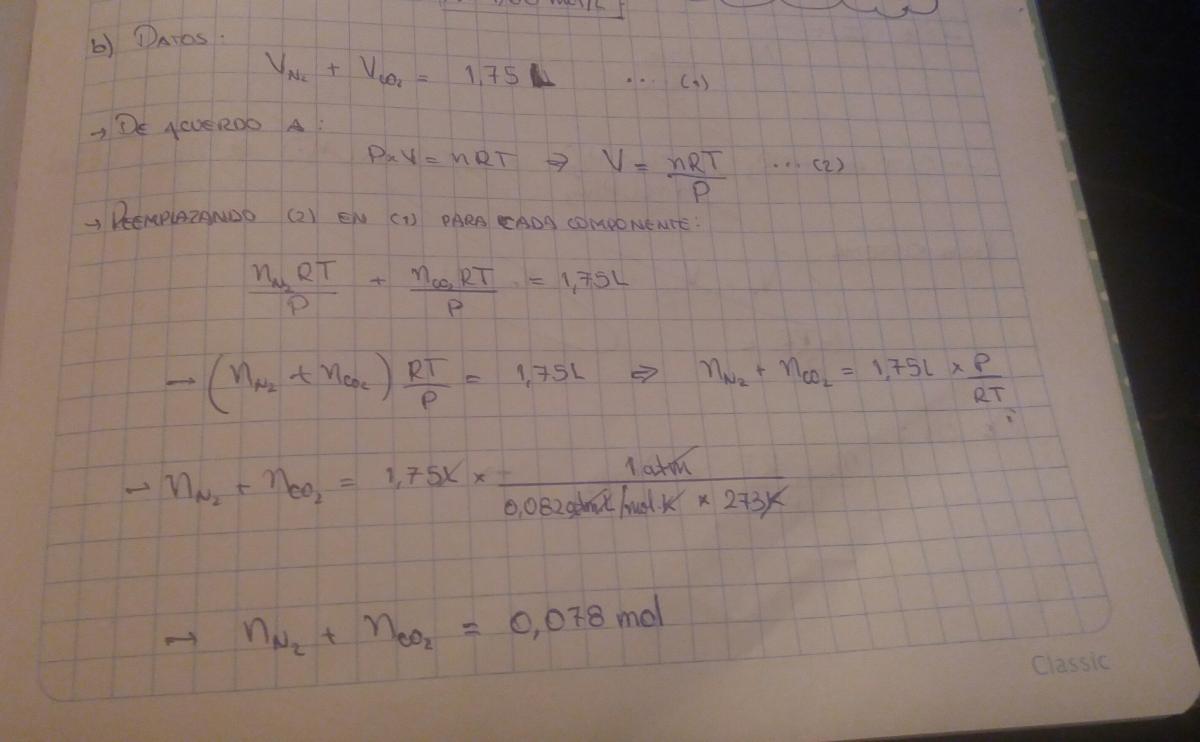 b) DATOS:
V_N₂ + V_CO₂ = 1,75 L ... (1)
→ DE ACUERDO A:
P×V = nRT ⇒ V = nRT/P ... (2)
→ REEMPLAZANDO (2) EN (1) PARA CADA COMPONENTE:
n_N₂RT/P + n_CO₂RT/P = 1,75L
→ (n_N₂ + n_CO₂) RT/P = 1,75L ⇒ n_N₂ + n_CO₂ = 1,75L × P/RT ;
→ n_N₂ + n_CO₂ = 1,75L × 1 atm / 0,082 atmL/mol.K × 273K
→ n_N₂ + n_CO₂ = 0,078 mol
Classic